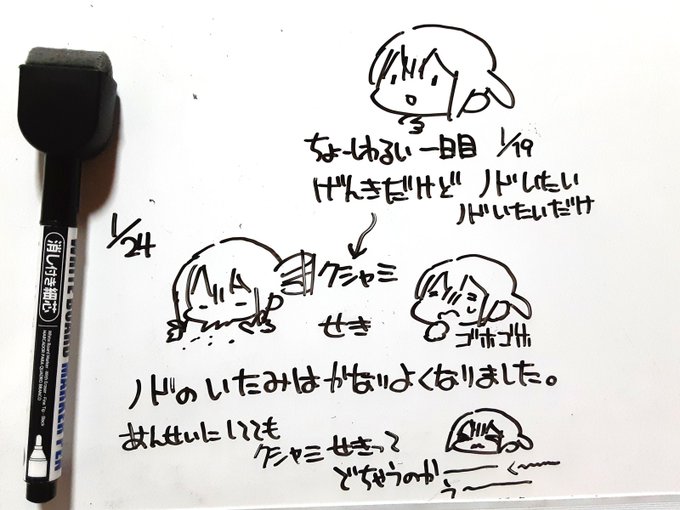 ちょーしわるい 一日目 1/19
げんきだけど ノドいたい
ノドいたいだけ
1/24
クシャミ
せき
ゴホゴホ
ノドのいたみはかなりよくなりました。
あんせいにしてても
クシャミ せきって
どちゃうのか
う
消し付き細芯
WHITE BOARD MARKER PEN